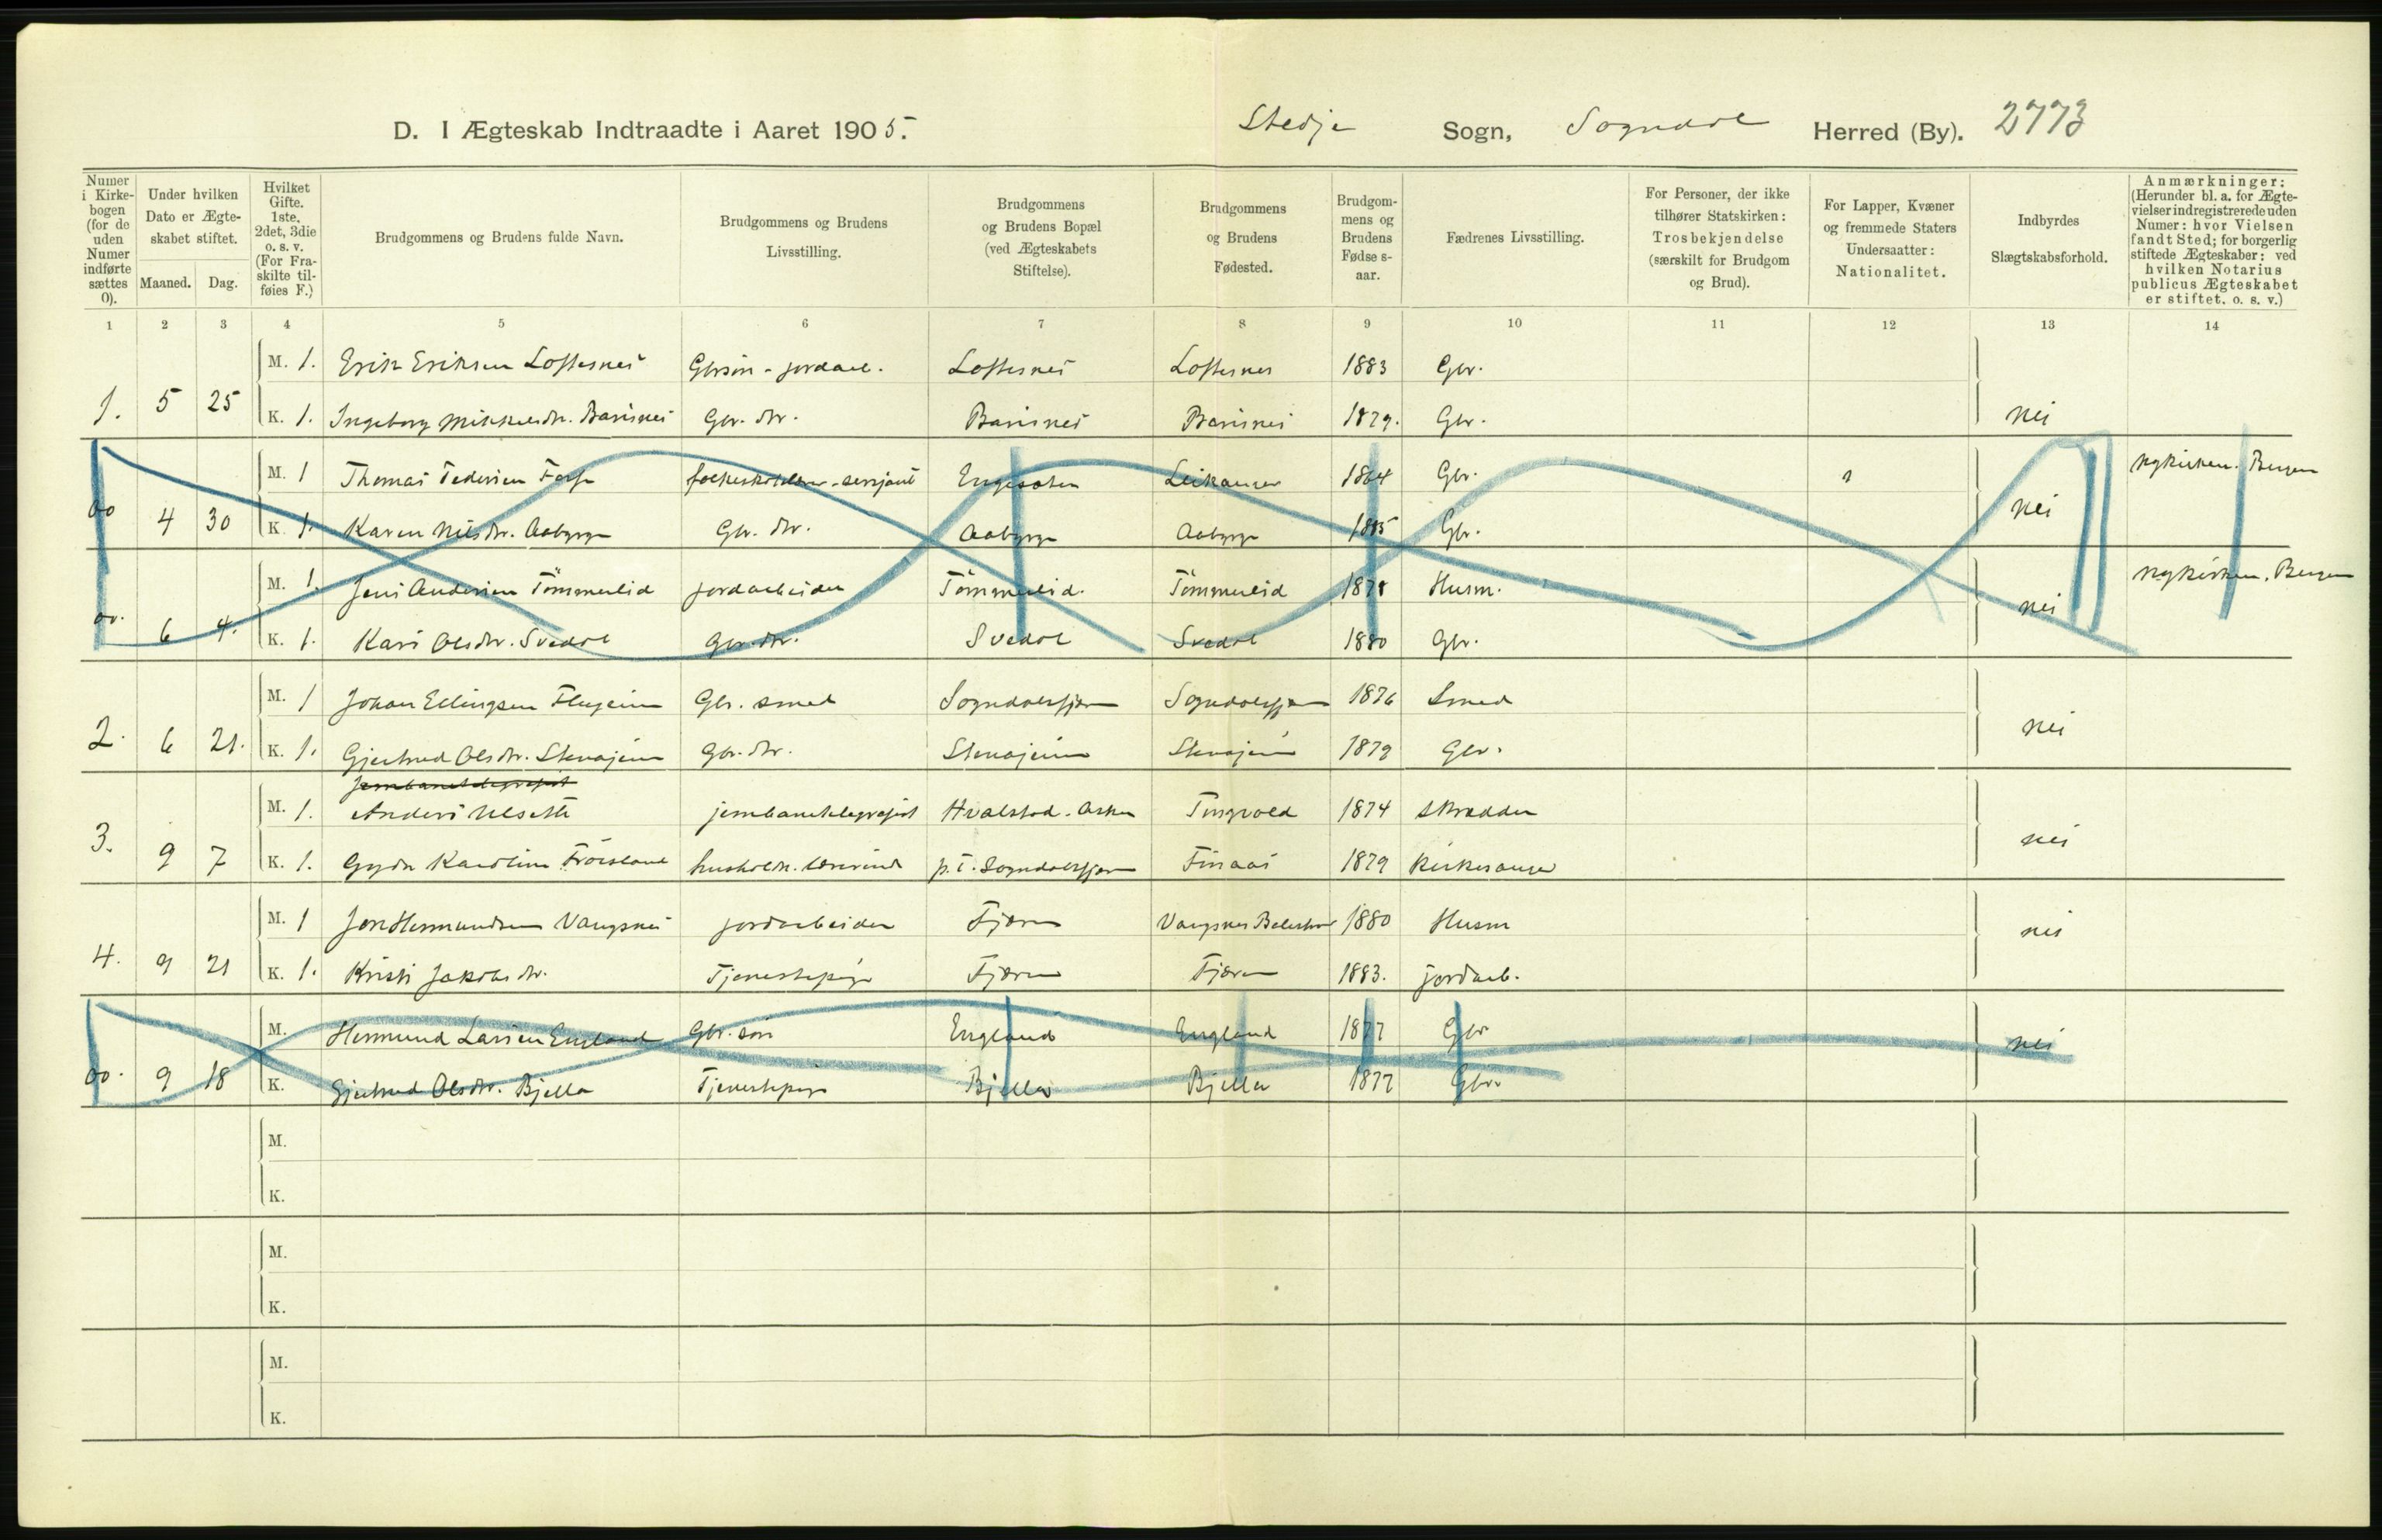 D. I Ægteskab Indtraadte i Aaret 1905. Stedje Sogn, Sogndal Herred (By). 2773
Numer i Kirkebogen (for de uden Numer indførte sættes 0).
Under hvilken Dato er Ægteskabet stiftet.
Maaned. Dag.
Hvilket Gifte. 1ste, 2det, 3die o. s. v. (For Fraskilte tilføies F.)
Brudgommens og Brudens fulde Navn.
Brudgommens og Brudens Livsstilling.
Brudgommens og Brudens Bopæl (ved Ægteskabets Stiftelse).
Brudgommens og Brudens Fødested.
Brudgommens og Brudens Fødse s-aar.
Fædrenes Livsstilling.
For Personer, der ikke tilhører Statskirken: Trosbekjendelse (særskilt for Brudgom og Brud).
For Lapper, Kvæner og fremmede Staters Undersaatter: Nationalitet.
Indbyrdes Slægtskabsforhold.
Anmærkninger: (Herunder bl. a. for Ægtevielser indregistrerede uden Numer: hvor Vielsen fandt Sted; for borgerlig stiftede Ægteskaber: ved hvilken Notarius publicus Ægteskabet er stiftet. o. s. v.)
1 2 3 4 5 6 7 8 9 10 11 12 13 14
M. 1. Erik Eriksen Loftesnes Gbrsøn - jordarb. Loftesnes Loftesnes 1883 Gbr.
1. 5 25 K. 1. Ingeborg Mikkelsdtr. Barsnes Gbr. dtr. Barsnes Barsnes 1879. Gbr. nei
M. 1 Thomas Pedersen Engesæter Leikanger 1864 Gbr. Nykirken. Bergen
00 4 30 K. 1. Karen Nilsdtr. Aaberge Gbr. dtr. Aaberge Aaberge 1885 Gbr. nei
M. 1. Jens Andersen Tömmerlid jordarbeider Tömmerlid. Tömmerlid 1878 Husm. Nykirken. Bergen
00. 6 4. K. 1. Kari Olsdtr. Svedal Gbr. dtr. Svedal Svedal 1880 Gbr. nei
M. 1 Johan Ellingsen Flugeim Gbr. smed Sogndalsfjæren Sogndalsfjæren 1876 Smed
2. 6 21. K. 1. Gjertrud Olsdtr. Stenajeim Gbr. dtr. Stenajeim Stenajeim 1879 Gbr. nei
jernbanetelegrafist
M. 1. Anders Ulseth jernbanetelegrafist Hvalstad. Asker Tingvold 1874 skrædder
3. 9 7 K. 1. Gyda Karoline husholdn. lærerinde p. t. Sogndalsfjæren Finaas 1879 Kirkesanger nei
M. 1 Jon Hermundsen Vangsnes jordarbeider Fjæren Vangsnes Balestrand 1880 Husm
4. 9 21 K. 1. Kristi Jakobsdtr. Tjenestepige Fjæren Fjæren 1883. jordarb. nei
M. Hermund Larsen England Gbr. søn England England 1877 Gbr
00. 9 18 K. Gjertrud Olsdtr. Bjella Tjenestepige Bjella Bjella 1877 Gbr. nei
M.
K.
M.
K.
M.
K.